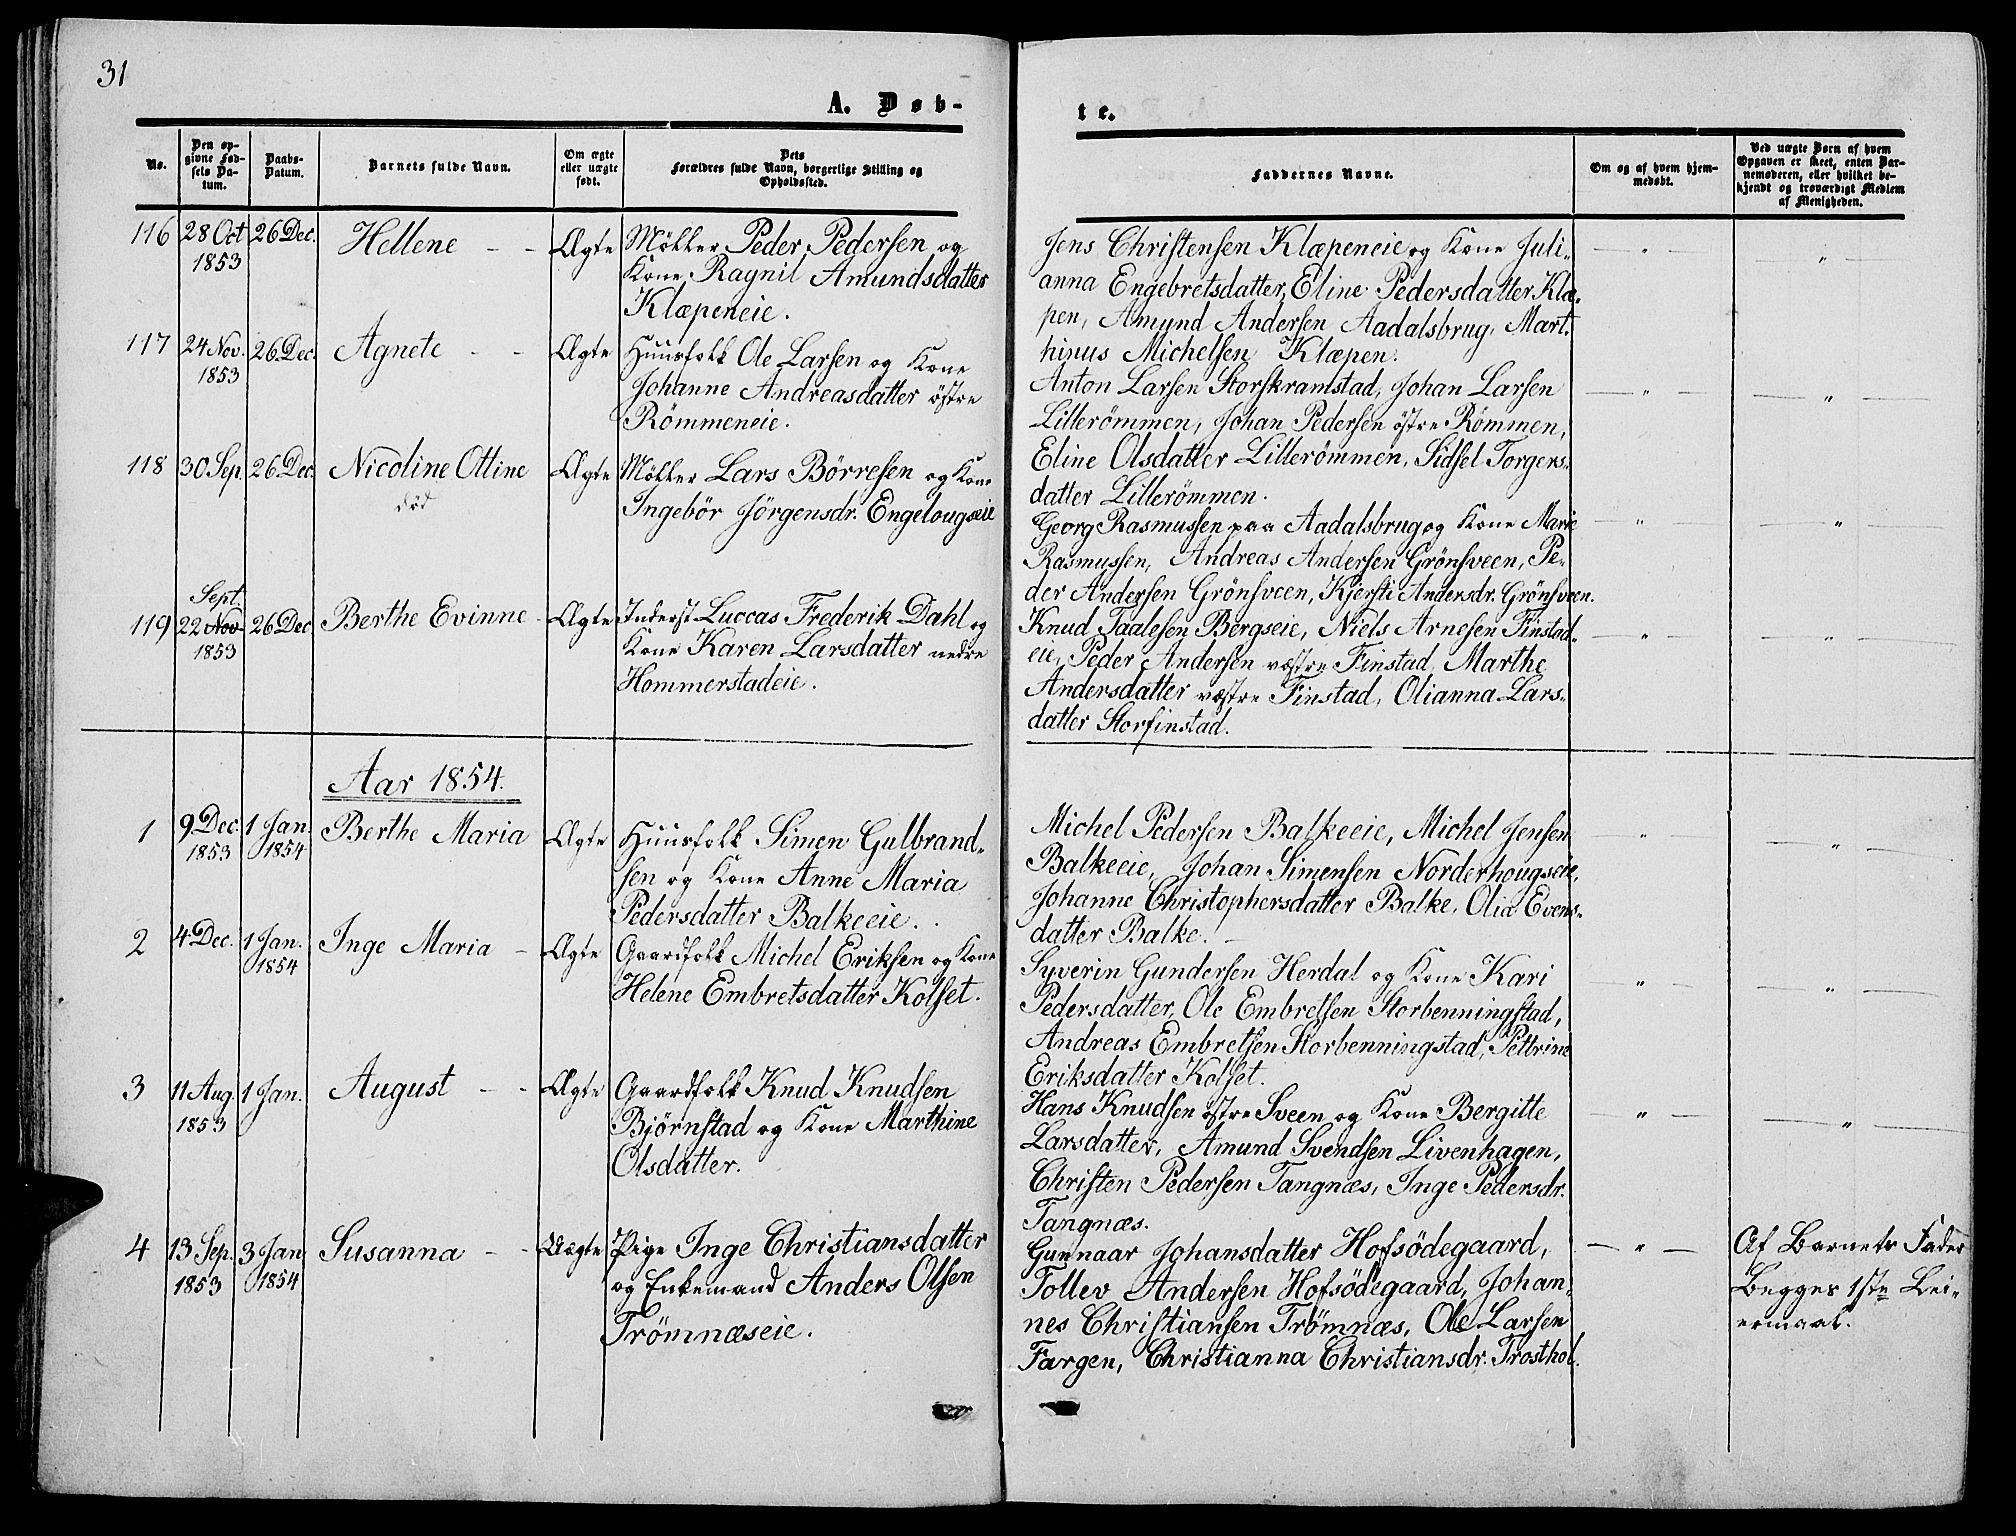 31
A. Døb-
te.
No.
Den op-
givne Fød-
sels Da-
tum.
Daabs-
Datum.
Barnets fulde Navn.
Om ægte
eller uægte
født.
Dets
Forældres fulde Navn, borgerlige Stilling og
Opholdssted.
Faddernes Navne.
Om og af hvem hjem-
medøbt.
Ved uægte Børn af hvem
Opgaven er skeet, enten Bar-
nemoderen, eller hvilket be-
kjendt og troværdigt Medlem
af Menigheden.
116
28 Oct
1853
26 Dec.
Hellene
Ægte
Møller Peder Pedersen og
Kone Raynil Amundsdatter
Klæpeneie.
Jens Christensen Klæpeneie og Kone Juli-
anna Engebretsdatter, Eline Pedersdatter Klæ-
pen, Amund Andersen Aadalsbrug, Mart-
hinus Michelsen Klæpen.
117
24 Nov.
1853
26 Dec.
Agnete
Ægte
Huusfolk Ole Larsen og Kone
Johanne Andreasdatter østre
Römmeneie.
Anton Larsen Storskramstad, Johan Larsen
Lillerömmen, Johan Pedersen östre Römmen,
Eline Olsdatter Lillerömmen, Sidsel Torgers-
datter Lillerömmen.
118
30 Sep.
26 Dec.
Nicoline Ottine
död
Ægte
Møller Lars Börresen og Kone
Ingebör Jörgensdr. Engelougseie
Georg Rasmussen paa Aadalsbrug og Kone Marie
Rasmussen, Andreas Andersen Grönsveen, Pe-
der Andersen Grönsveen, Kjersti Andersdr. Grönsveen.
119
Sept.
22 Nov
1853
26 Dec
Berthe Evinne
Ægte
Inderst Luccas Frederik Dahl og
Kone Karen Larsdatter nedre
Hommerstadeie.
Knud Taalesen Bergseie, Niels Arnesen Finstad-
eie, Peder Andersen vestre Finstad, Marthe
Andersdatter vestre Finstad, Olianna Lars-
datter Storfinstad.
Aar 1854.
1
9 Dec.
1853
1 Jan.
1854
Berthe Maria
Ægte
Huusfolk Simen Gulbrand-
sen og Kone Anne Maria
Pedersdatter Balkeeie.
Michel Pedersen Balkeeie, Michel Jensen
Balkeeie, Johan Simensen Norderhougseie,
Johanne Christophersdatter Balke, Olia Evens-
datter Balke.
2
4 Dec.
1 Jan.
1854
Inge Maria
Ægte
Gaardfolk Michel Eriksen og Kone
Helene Embretsdatter Kolset.
Syverin Gundersen Herdal og Kone Kari
Pedersdatter, Ole Embretsen Storbenningstad,
Andreas Embretsen Storbenningstad, Pettrine
Eriksdatter Kolset.
3
11 Aug.
1853
1 Jan.
August
Ægte
Gaardfolk Knud Knudsen
Bjørnstad og Kone Marthine
Olsdatter.
Hans Knudsen östre Sveen og Kone Bergitte
Larsdatter, Amund Svendsen Livenhagen,
Christen Pedersen Tangnæs, Inge Pedersdr.
Tangnæs.
4
13 Sep.
1853
3 Jan
1854
Susanna
Uægte
Pige Inge Christiansdatter
og Enkemand Anders Olsen
Trömnæseie.
Gunnaar Johansdatter Hofsödegaard,
Tollev Andersen Hofsödegaard, Johan-
nes Christiansen Trömnæs, Ole Larsen
Fargen, Christianna Christiansdr. Trosthol.
Af Barnets Fader
Begges 1ste Lei-
ermaal.